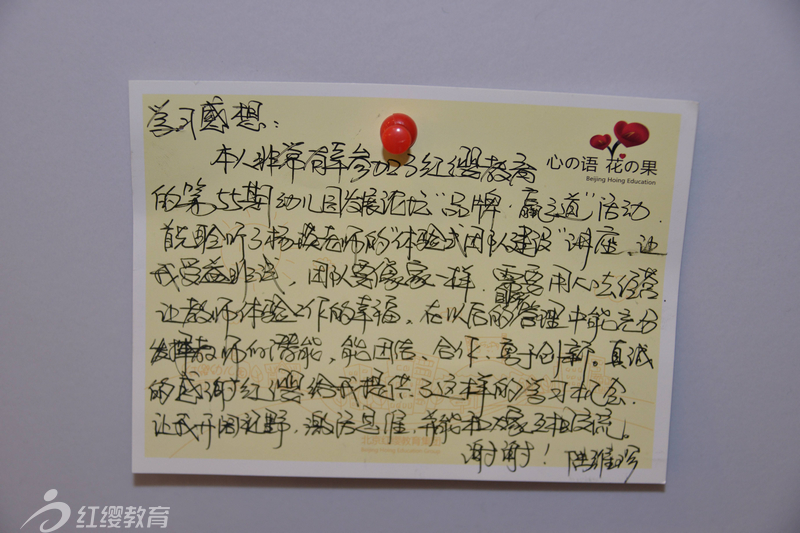 学习感想:
心の语 花の果
Beijing Hoing Education
本人非常有幸参加了红缨教育
的第55期幼儿园发展论坛“品牌·赢之道”活动.
首先聆听了杨瑛老师的“体验式团队建设”讲座,让
我受益非浅,团队要像家一样,需要用心去经营
让教师体验工作的幸福,在以后的管理中能充分
发挥教师的潜能,能团结、合作、勇于创新。真诚
的感谢红缨给我提供了这样的学习机会.
让我开阔视野,激活思维,并能和大家互相交流。
谢谢!
红缨教育